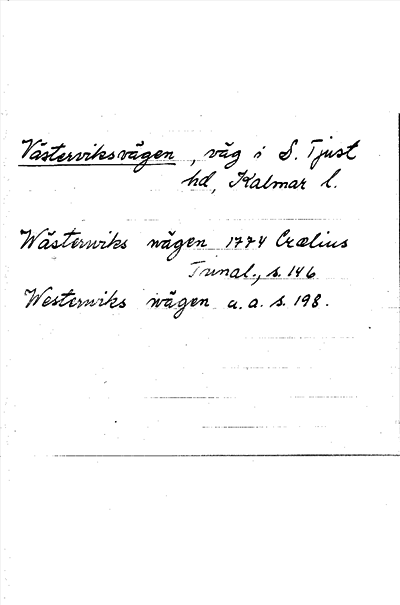 Västerviksvägen, väg i S. Tjust
hd, Kalmar l.
Wästerwiks wägen 1774 Crælius
Tunal., s. 146
Westerwiks wägen a. a. s. 198.